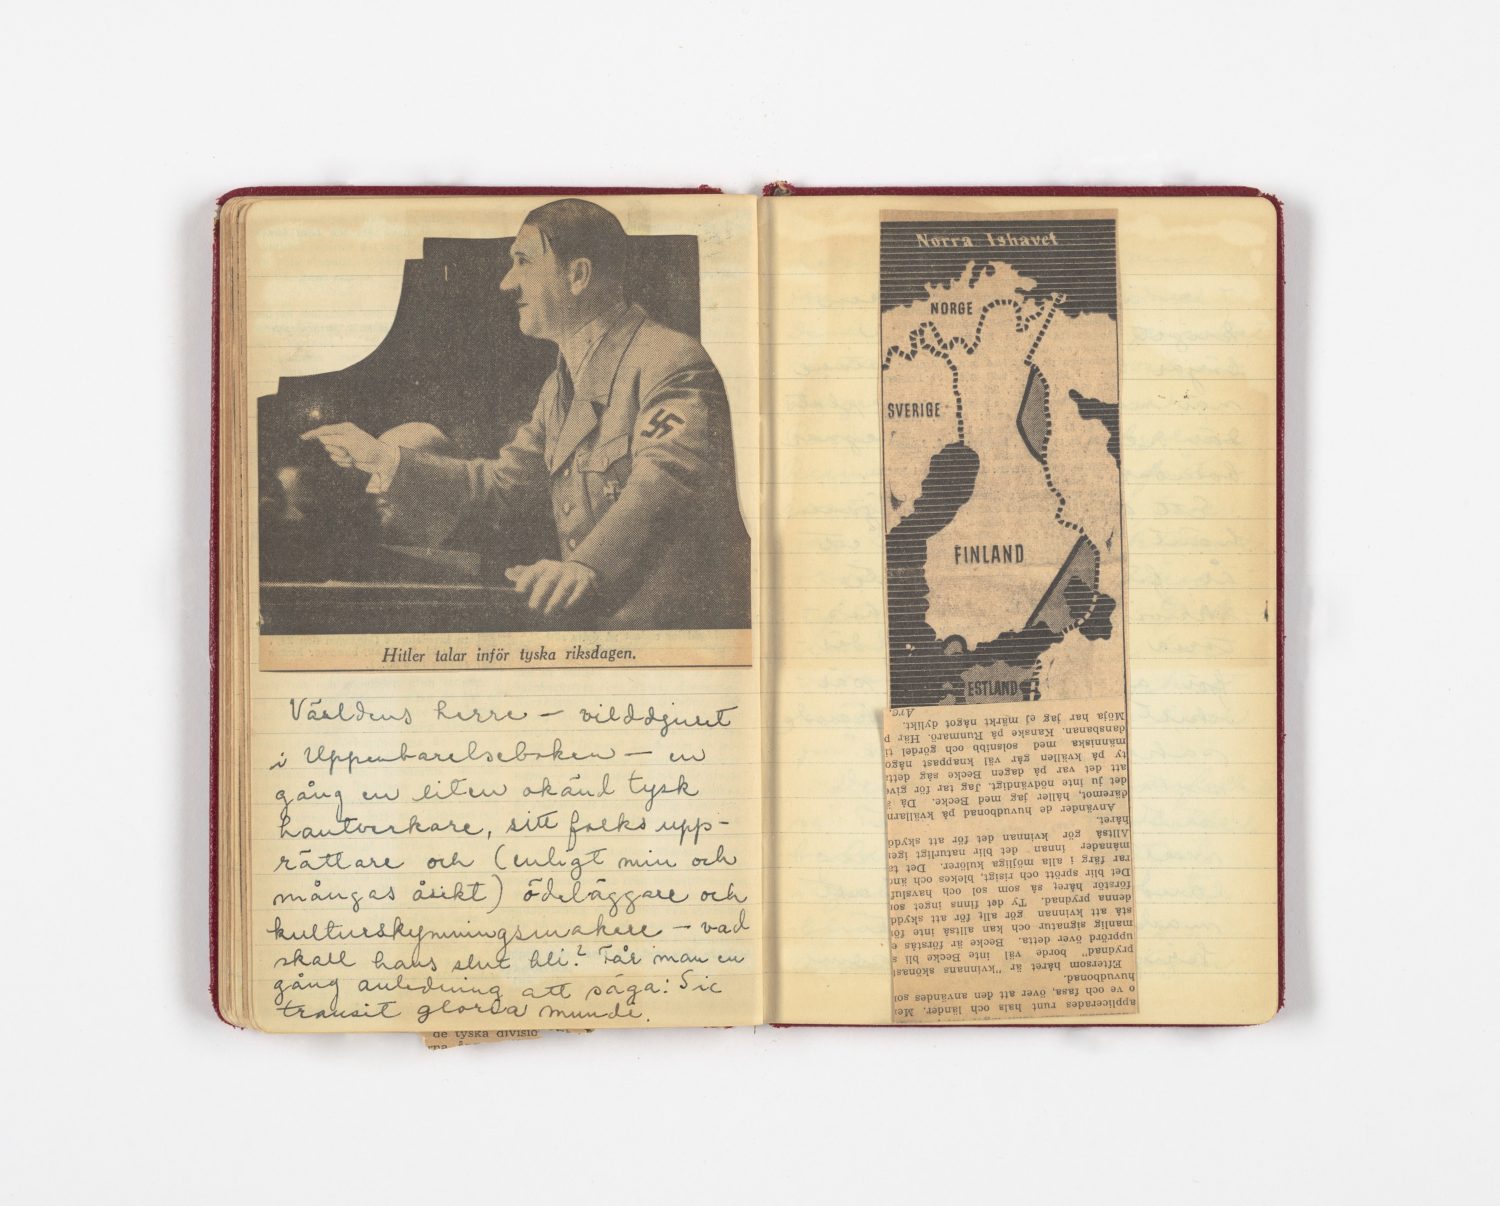 Hitler talar inför tyska riksdagen.
Världens herre – vilddjuret
i Uppenbarelseboken – en
gång en liten okänd tysk
hantverkare, sitt folks upp-
rättare och (enligt min och
mångas åsikt) ödeläggare och
kulturskymningsmakare – vad
skall hans slut bli? Får man en
gång anledning att säga: Sic
transit gloria mundi.
de tyska divisio
Norra Ishavet
NORGE
SVERIGE
FINLAND
ESTLAND
applicerades runt hals och länder. Me
o ve och fasa, över att den användes so
huvudbonad.
Eftersom håret är "kvinnans skönast
prydnad" borde väl inte Becke bli s
upprörd över detta. Becke är förstås e
manlig signatur och kan alltså inte för
stå att kvinnan gör allt för att skydd
denna prydnad. Ty det finns inget so
förstör håret så som sol och havsluf
Det blir sprött och risigt, blekes och än
rar färg i alla möjliga kulörer. Det ta
månader innan det blir naturligt igen
Alltså gör kvinnan det för att skydd
håret.
Använder de huvudbonad på kvällarn
däremot, håller jag med Becke. Då ä
det ju inte nödvändigt. Jag tar för give
att det var på dagen Becke såg detta
ty på kvällen går väl knappast någo
människa med solsnibb och gördel ti
dansbanan. Kanske på Runmarö. Här p
Möja har jag ej märkt något dylikt.
Arc.